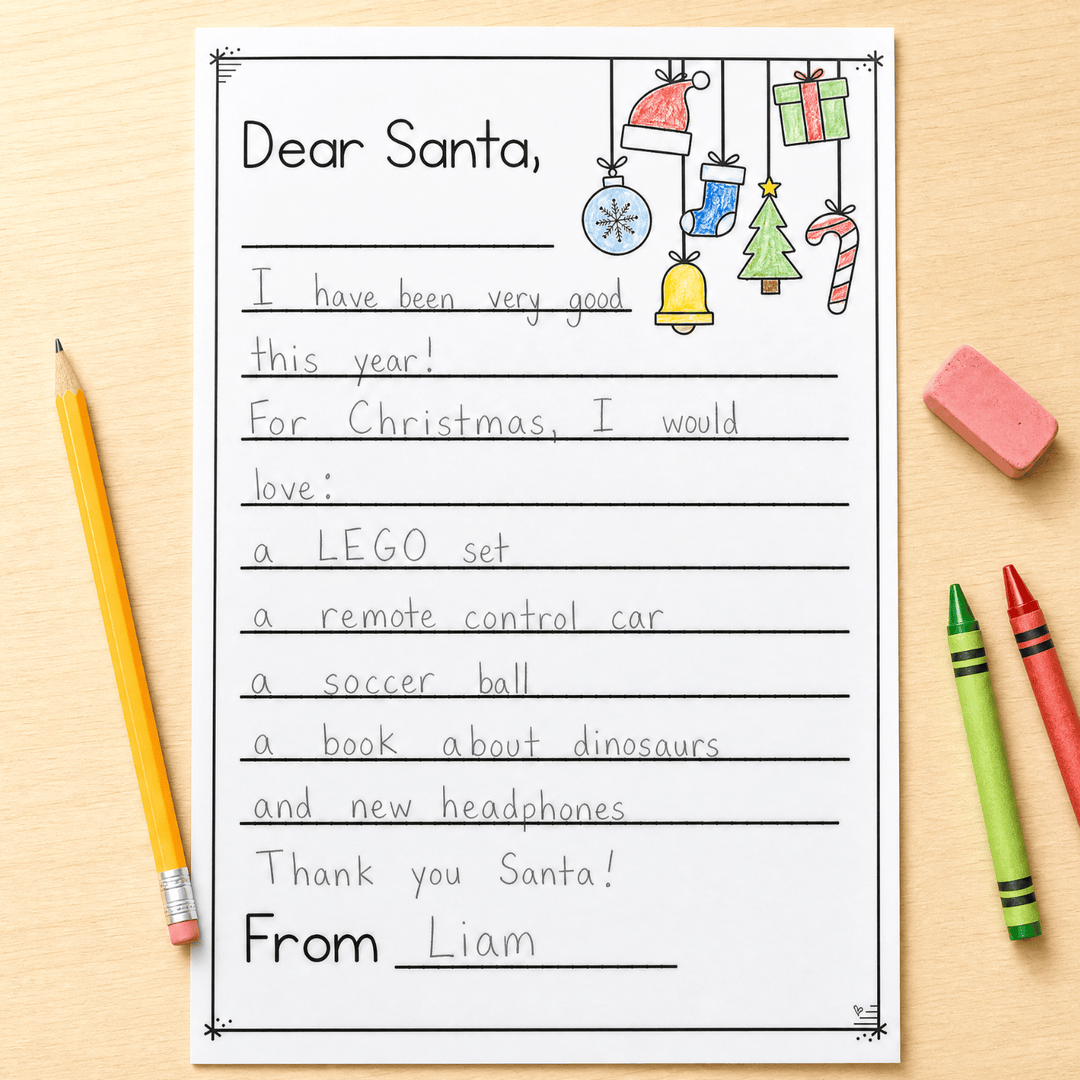 Dear Santa,
I have been very good
this year!
For Christmas, I would
love:
a LEGO set
a remote control car
a soccer ball
a book about dinosaurs
and new headphones
Thank you Santa!
From Liam